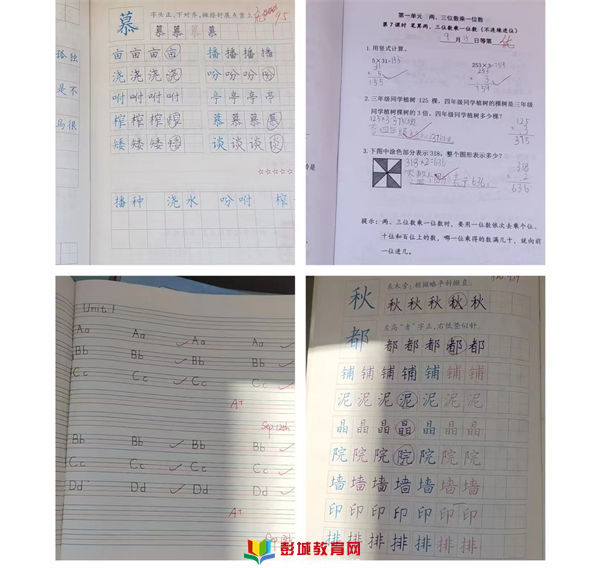 慕
字头正,下对齐,撇捺舒展点靠上
95
慕慕慕慕
孤独
是不
鸟很
亩亩亩亩 播播播播
浇浇浇浇 吩吩吩吩
咐咐咐咐 亭亭亭亭
榨榨榨榨 慕慕慕慕
矮矮矮矮 谈谈谈谈
☆☆☆☆☆
播种 浇水 吩咐 榨
第一单元 两、三位数乘一位数
第7课时 笔算两、三位数乘一位数(不连续进位)
9月 日等第 优
1. 用竖式计算。
5×31= 253×3=
2. 三年级同学植树 125 棵,四年级同学植树的棵树是三年
级同学植树棵树的3倍,四年级同学植树多少棵?
3. 下图中涂色部分表示318,整个图形表示多少?
318×2=636
318
2
636
提示:两、三位数乘一位数时,要用一位数依次去乘个位、
十位和百位上的数,哪一位乘得的数满几十,就向前
一位进几。
Unit 1
Aa Aa Aa Aa
Bb Bb Bb Bb
Cc Cc Cc Cc
A+
Sep. 12th
Bb Bb Bb Bb
Cc Cc Cc Cc
Dd Dd Dd Dd
A+
秋
左木旁:短撇略平斜撇直。
秋秋秋秋秋
都
左高“者”字正,右低竖
都都都都都
铺铺铺铺铺铺铺
泥泥泥泥泥泥泥
晶晶晶晶晶晶晶
院院院院院院院
墙墙墙墙墙墙墙
印印印印印印印
排排排排排排排
彭城教育网